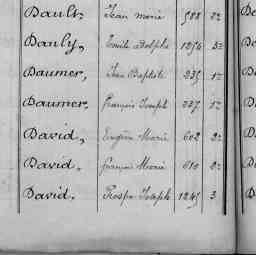 Dault, Jean marie 588 2e
Dauly, Emile Adolphe 1254 3e
Daumer, Jean Baptiste 235 1e
Daumer, François Joseph 237 1e
David, Eugène Marie 602 2e
David, François Marie 610 2e
David, Prosper Joseph 1245 3